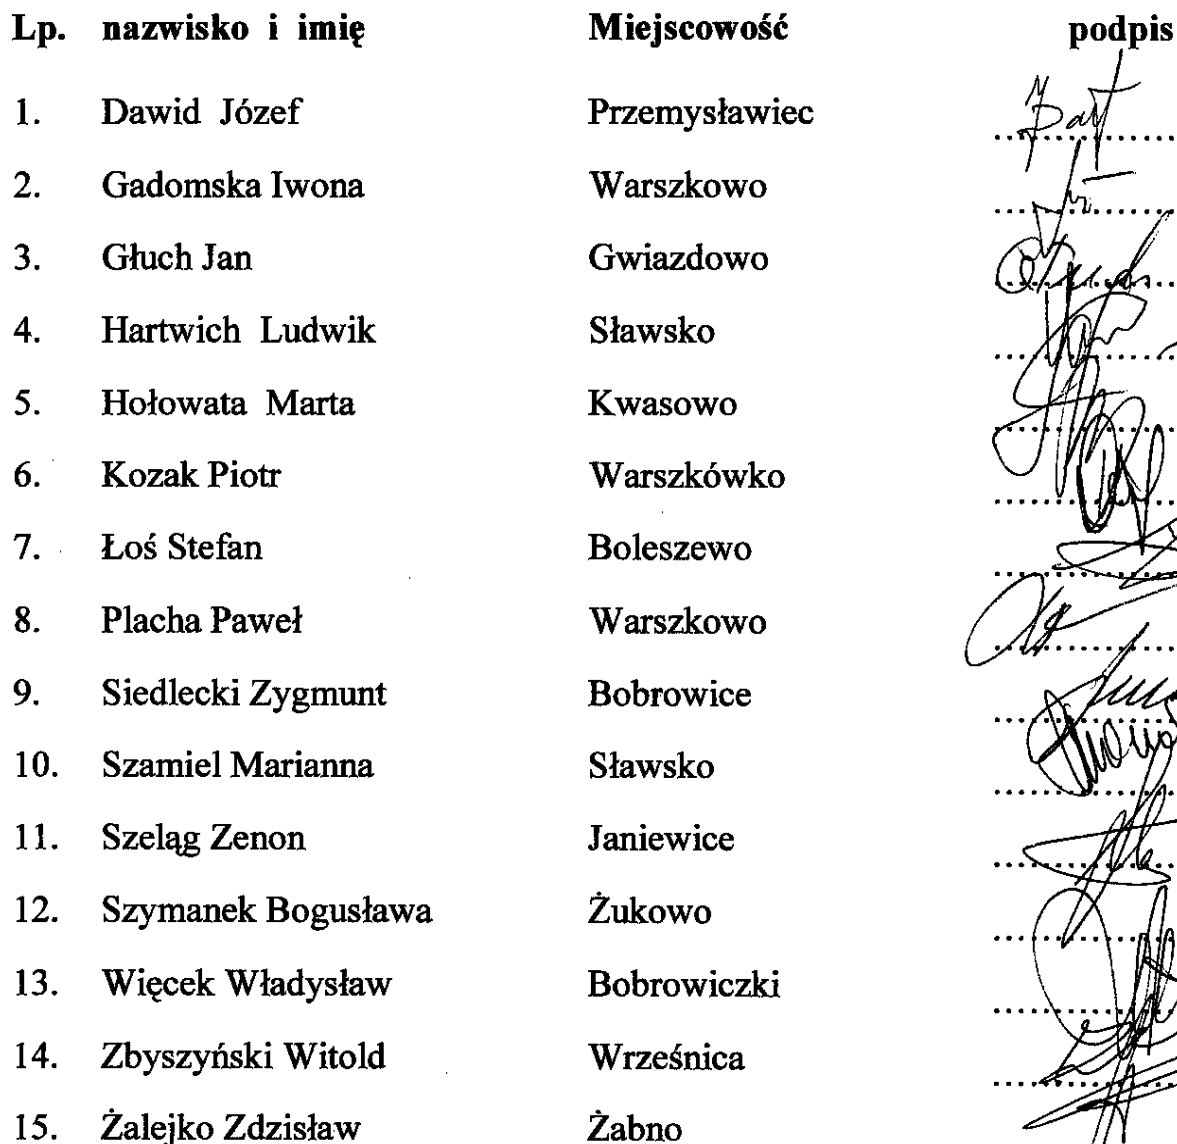 Lp. nazwisko i imię Miejscowość podpis
1. Dawid Józef Przemysławiec
2. Gadomska Iwona Warszkowo
3. Głuch Jan Gwiazdowo
4. Hartwich Ludwik Sławsko
5. Hołowata Marta Kwasowo
6. Kozak Piotr Warszkówko
7. Łoś Stefan Boleszewo
8. Placha Paweł Warszkowo
9. Siedlecki Zygmunt Bobrowice
10. Szamiel Marianna Sławsko
11. Szeląg Zenon Janiewice
12. Szymanek Bogusława Żukowo
13. Więcek Władysław Bobrowiczki
14. Zbyszyński Witold Wrześnica
15. Żalejko Zdzisław Żabno